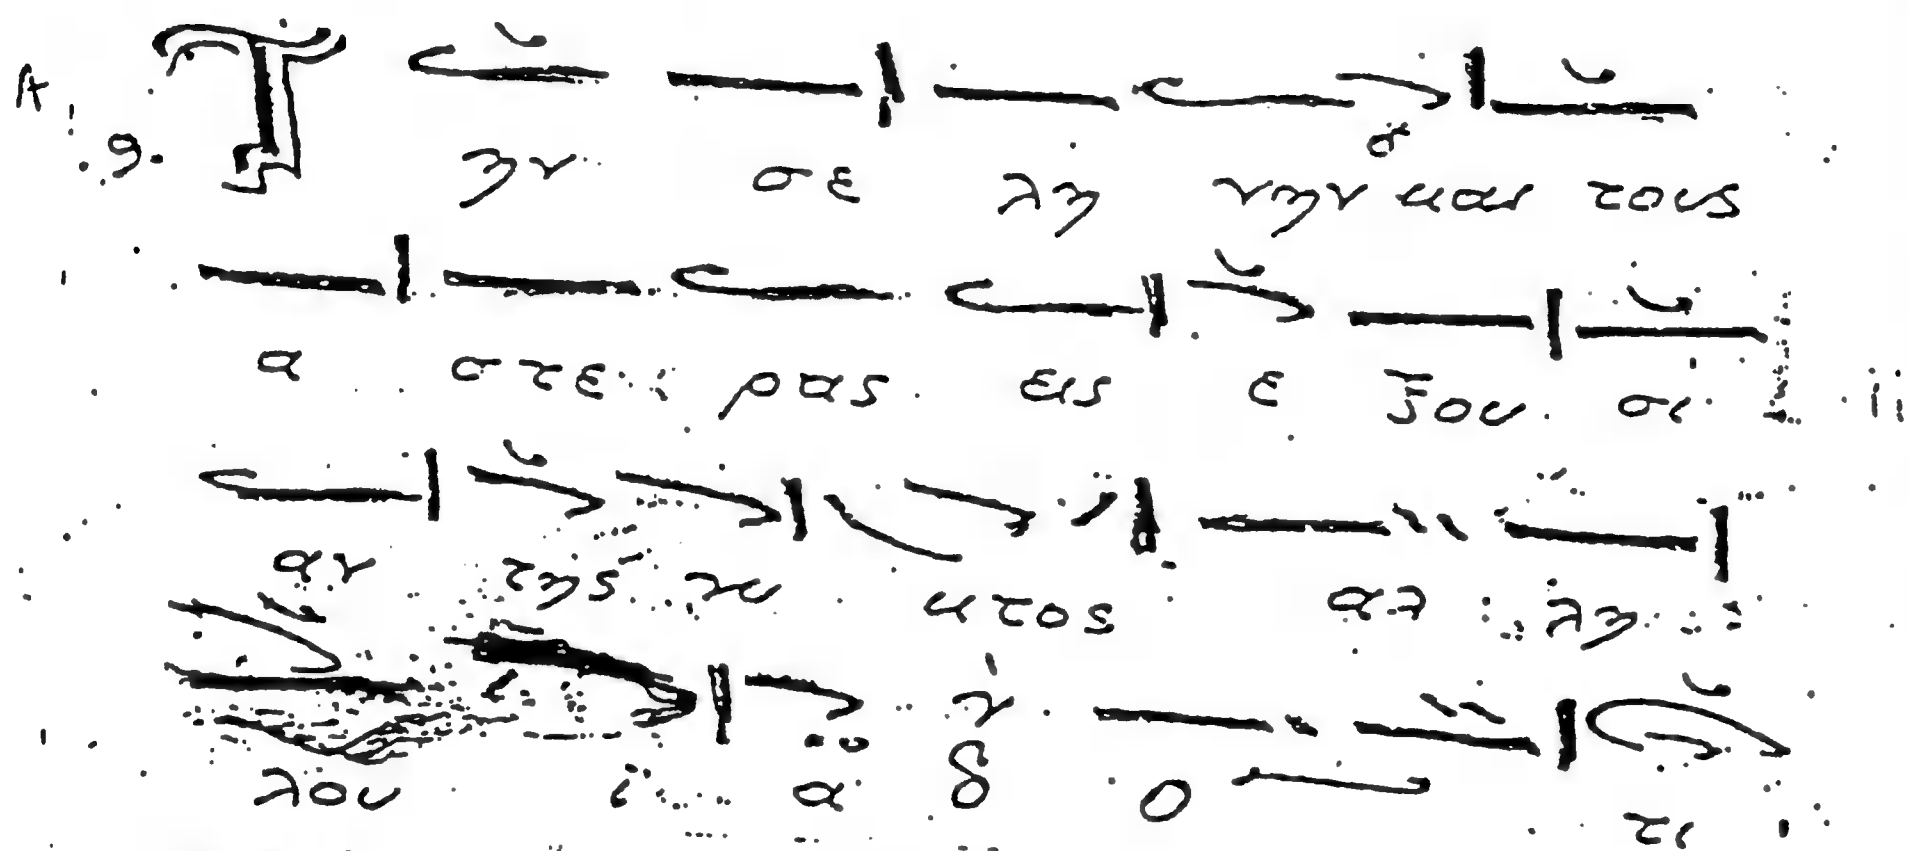 9. Τ ην σε λη νην και τους
α στε ρας εις ε ξου σι
αν της νυ κτος αλ λη
λου ι α δ ο τι